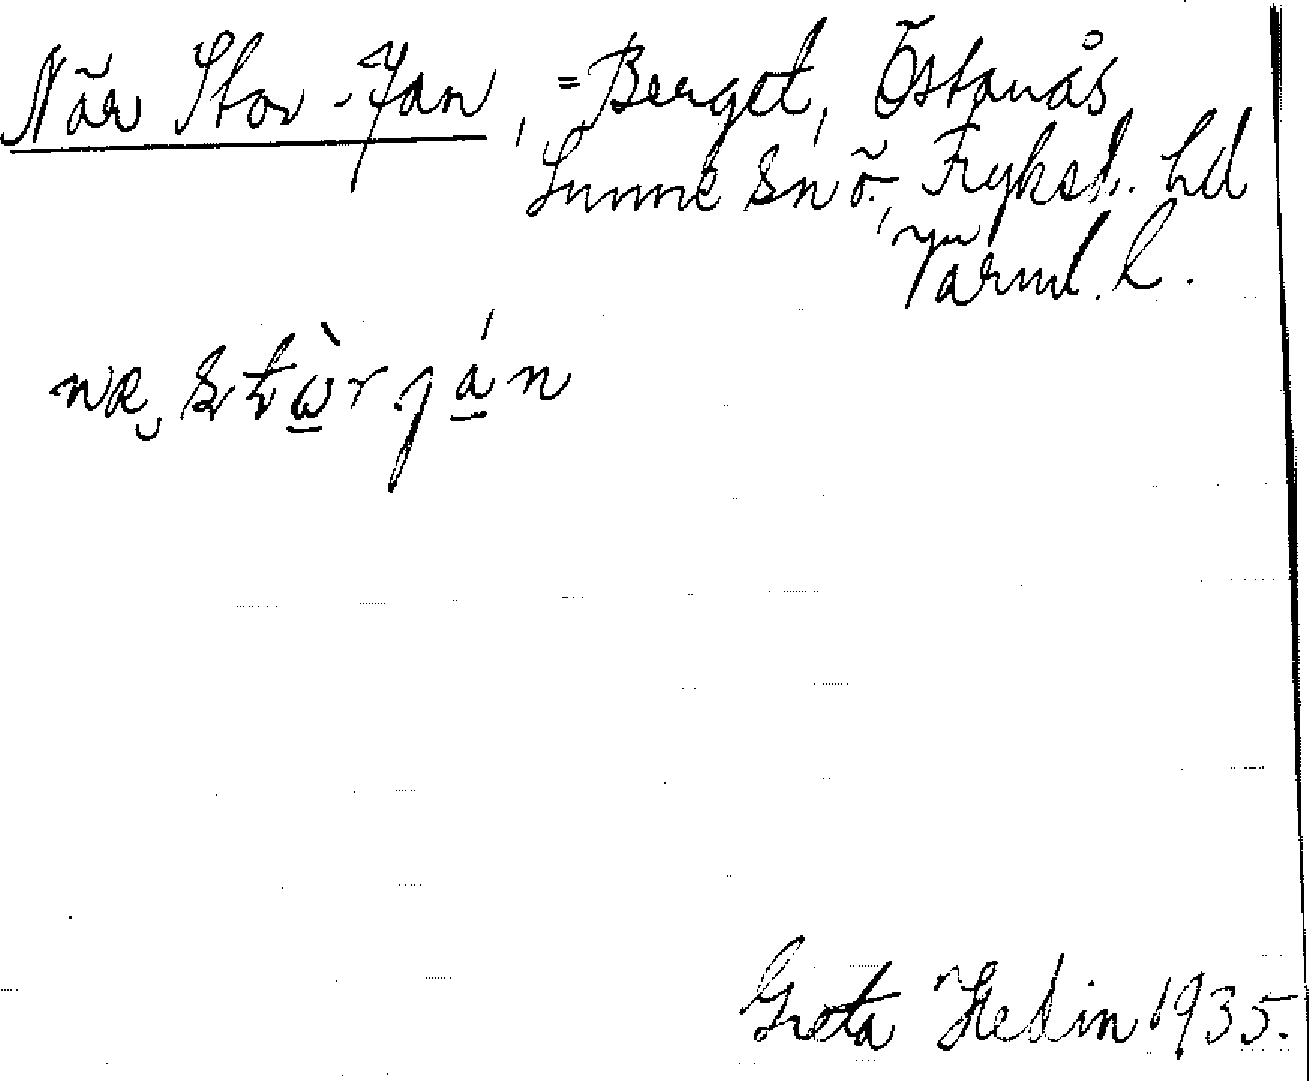 När Stor-Jan, =Berget, Östanås
Sunne sn ö., Fryksd. hd
Värml. l.
Greta Hedin 1935.